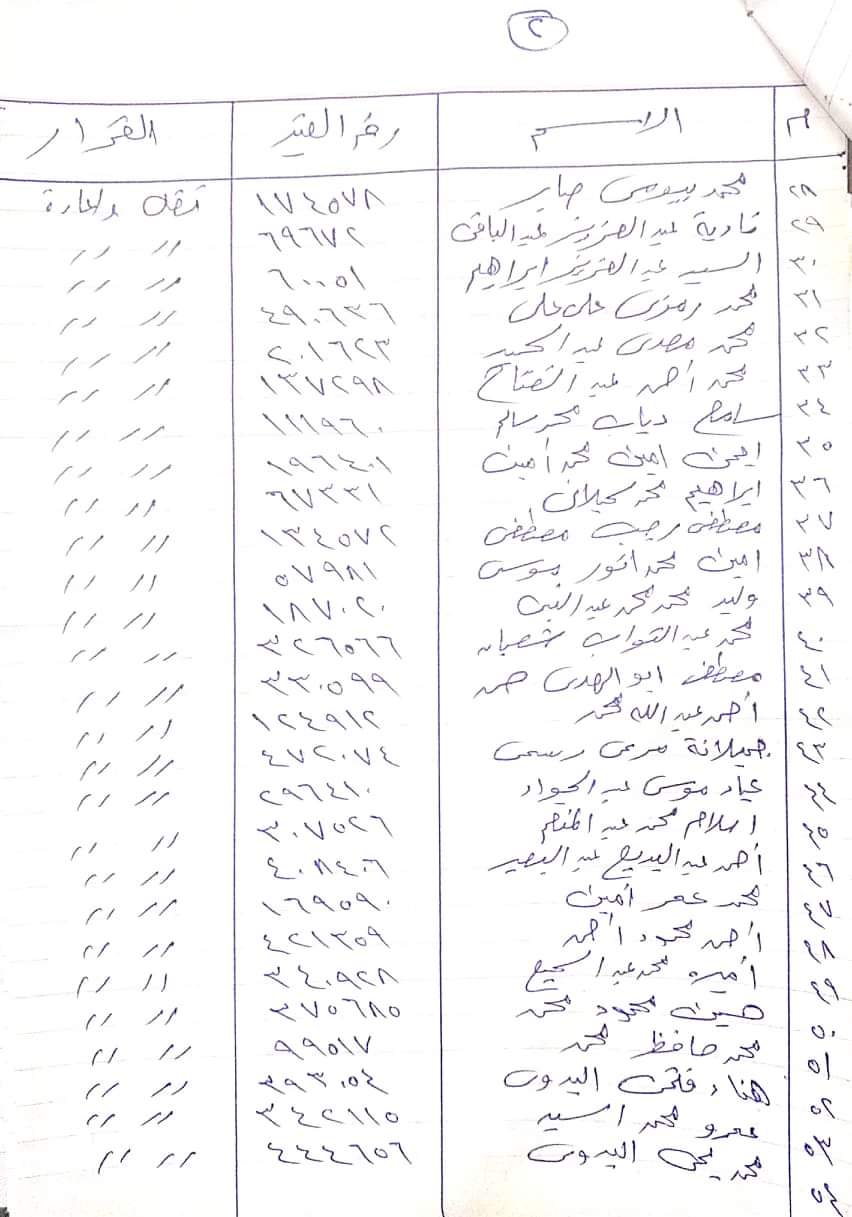 ٢
م الاســم رقم القيد القرار
٢٨ محمد بيومى صابر ١٧٤٥٧٨ نقل وإعارة
٢٩ نادية عبد العزيز عبد الباقى ٦٩٦٧٢ // //
٣٠ السيد عبد العزيز ابراهيم ٦٠٠٥١ // //
٣١ محمد رمزى على على ٤٩٠٦٣٦ // //
٣٢ محمد مهدى عبد الحميد ٢٠١٦٢٣ // //
٣٣ محمد أحمد عبد الفتاح ١٣٧٢٩٨ // //
٣٤ سامح دياب محمد سالم ١١١٩٦٠ // //
٣٥ ايمن امين محمد أمين ١٩٦٤٠١ // //
٣٦ ابراهيم محمد كيلانى ٦٧٣٣١ // //
٣٧ مصطفى رجب مصطفى ١٣٤٥٧٢ // //
٣٨ امين محمد انور موسى ٥٧٩٨١ // //
٣٩ وليد محمد محمد عبد النبى ١٨٧٠٢٠ // //
٤٠ محمد عبد التواب شعبان ٣٢٦٥٦٦ // //
٤١ مصطفى ابو الهدى حمد ٣٣٠٥٩٩ // //
٤٢ أحمد عبد الله محمد ١٢٤٩١٢ // //
٤٣ جميلانة مرعى رسمى ٤٧٢٠٧٤ // //
٤٤ عياد موسى عبد الجواد ٢٩٦٤١٠ // //
٤٥ اسلام محمد عبد المنعم ٣٠٧٥٢٦ // //
٤٦ أحمد عبد البديع عبد البصير ٤٠٨٤٠٦ // //
٤٧ محمد عمر أمين ١٦٩٥٩٠ // //
٤٨ أحمد محمود أحمد ٤٢١٣٥٩ // //
٤٩ أميره محمد عبد السميع ٣٤٠٩٢٨ // //
٥٠ حسين محمود محمد ٣٧٥٦٨٥ // //
٥١ محمد حافظ محمد ٩٩٥١٧ // //
٥٢ هناء فتحى البدوى ٣٩٣٠٥٤ // //
٥٣ عمرو محمد السيد ٣٤٢١١٥ // //
٥٤ محمد يحى البدوى ٤٤٤٦٥٦ // //